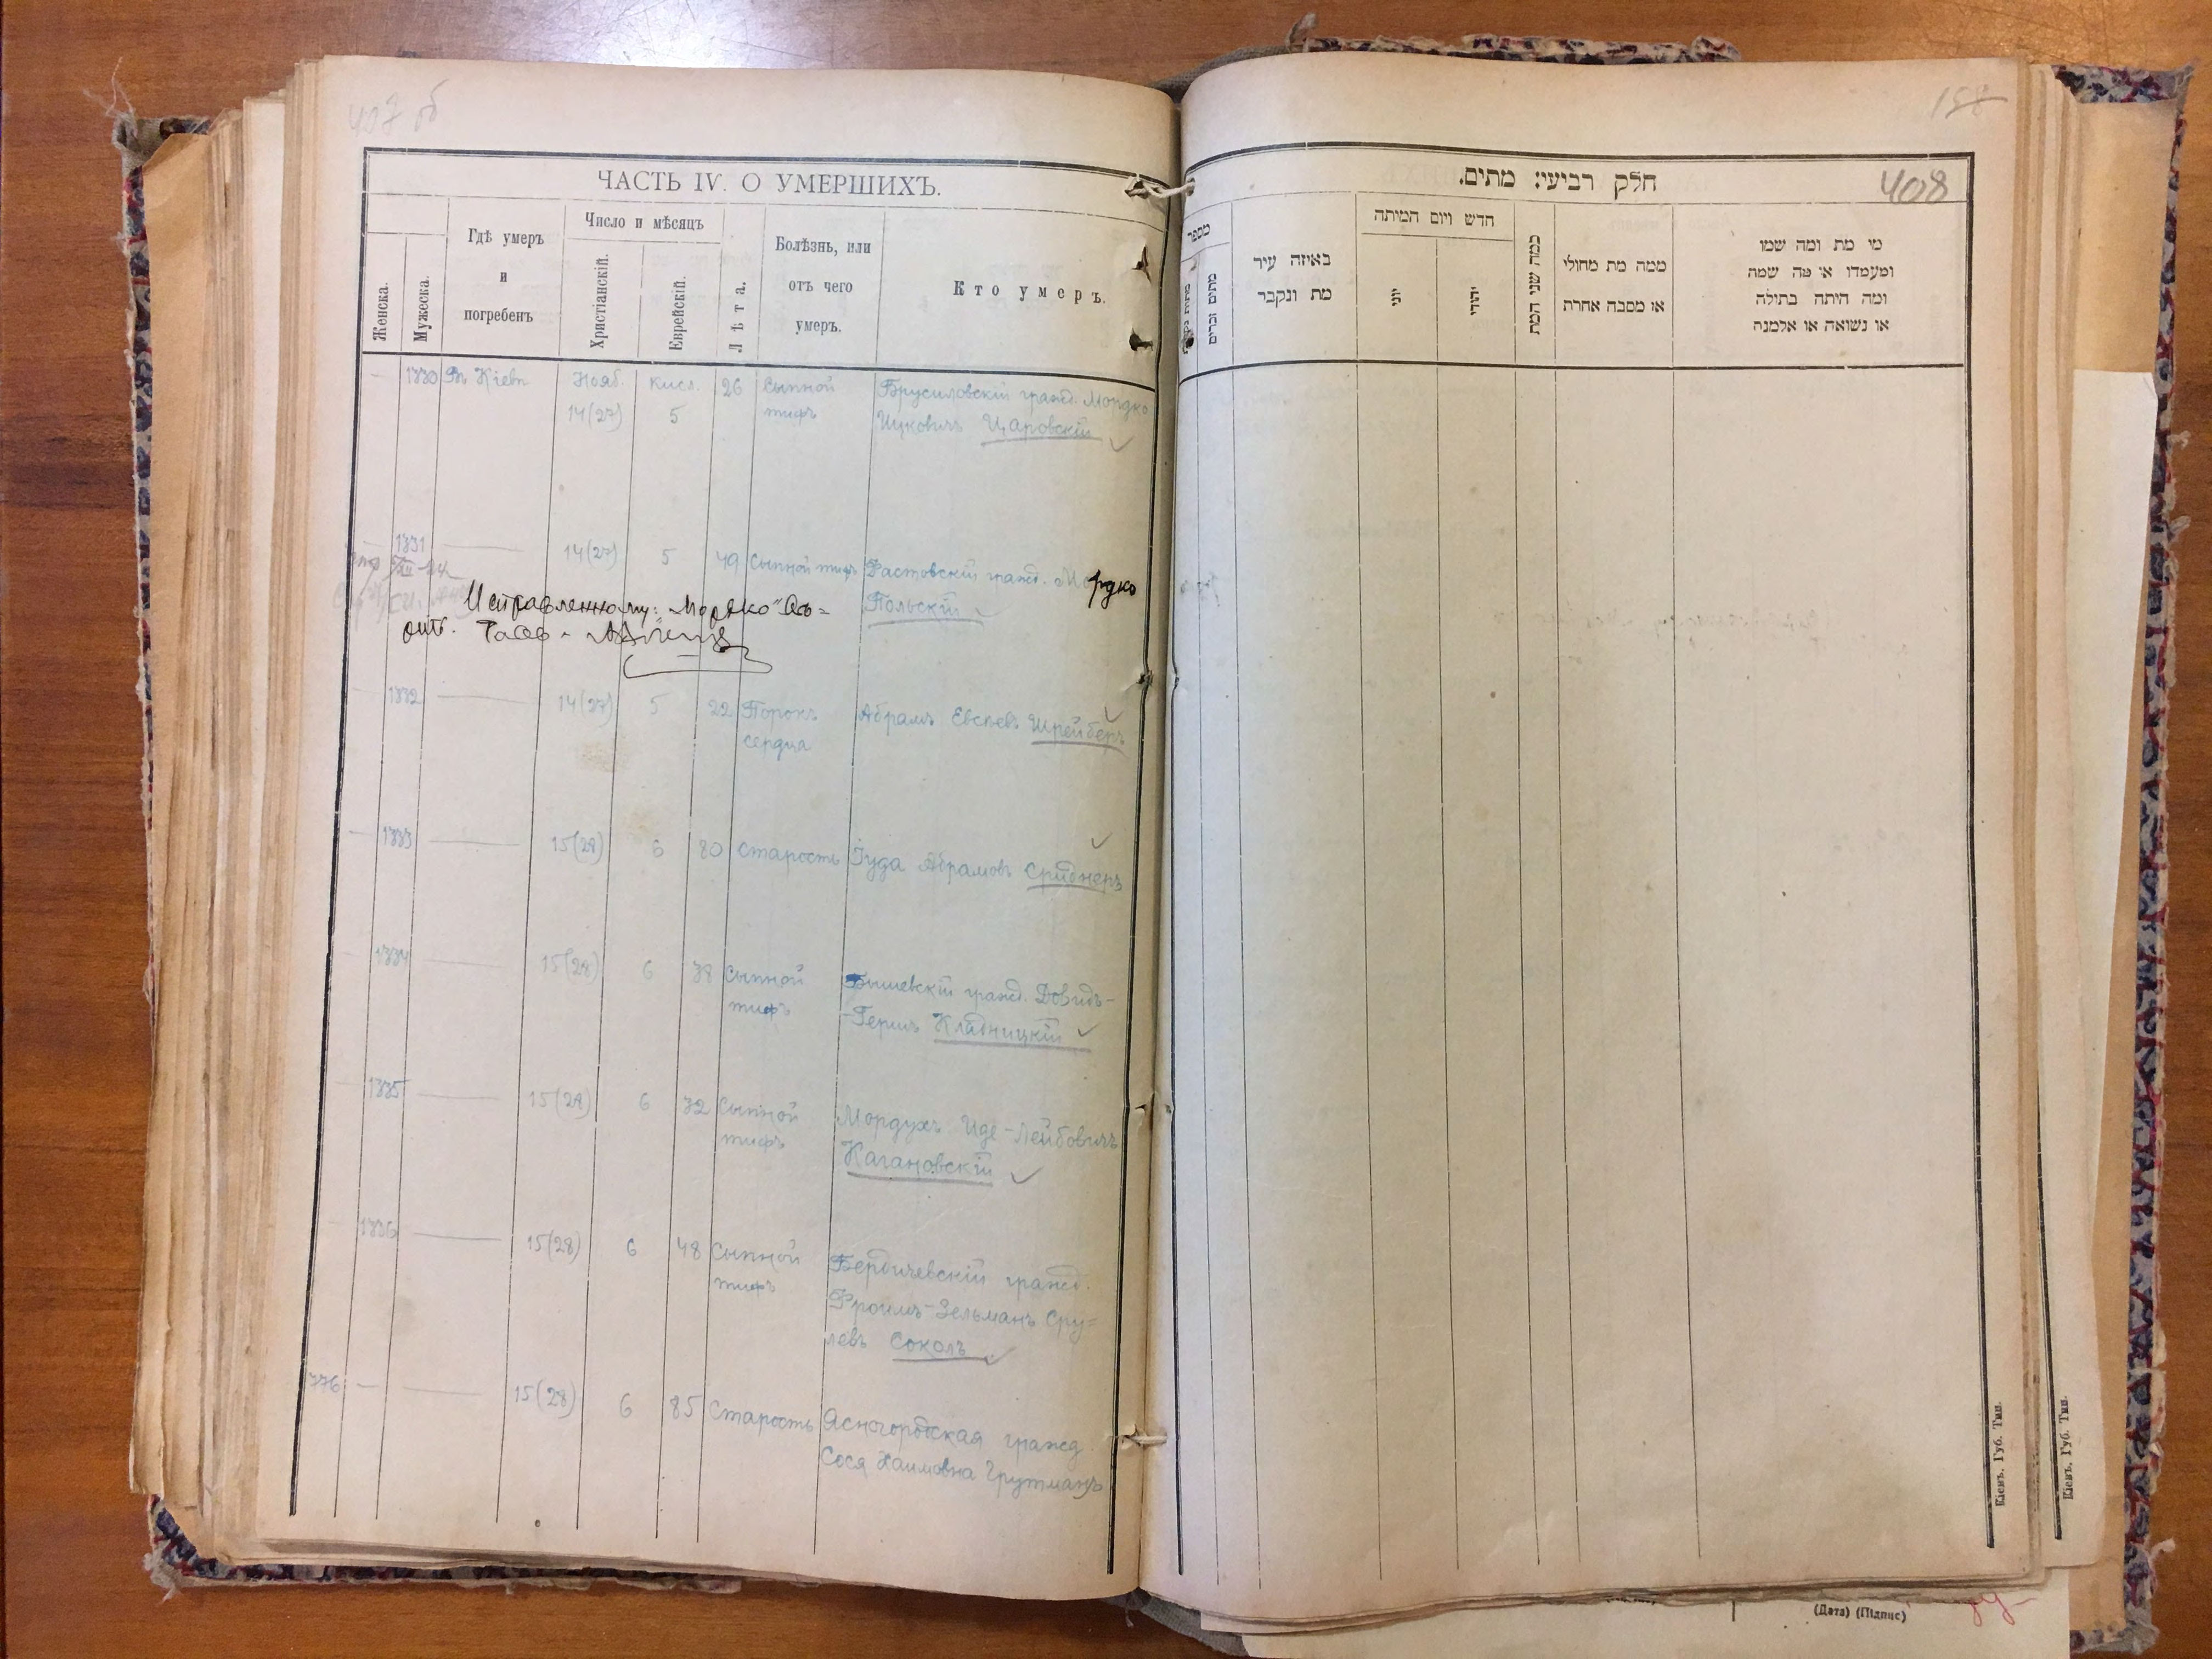 407 об
ЧАСТЬ IV. О УМЕРШИХЪ.
Женска.
Мужеска.
Гдѣ умеръ
и
погребенъ
Число и мѣсяцъ
Христіанскій.
Еврейскій.
Лѣта.
Болѣзнь, или
отъ чего
умеръ.
Кто умеръ.
— 1330 Въ Кіевѣ Нояб. Кисл. 26 Сыпной Брусиловскій гражд. Мордко
14(27) 5 тифъ Ицковичъ Царовскій
1331 14(27) 5 49 Сыпной тифъ Фастовскій гражд. Мордко
Польскій
Исправленному: "Мордко"
1332 14(27) 5 22 Порокъ Абрамъ Евсѣевъ Шрейберъ
сердца
— 1333 15(28) 6 80 Старость Іуда Абрамовъ
— 1334 15(28) 6 38 Сыпной Бышевскій гражд. Довидъ-
тифъ -Гершъ Кладницкій
1335 15(28) 6 32 Сыпной Мордухъ Иде-Лейбовичъ
тифъ Кагановскій
1336 15(28) 6 48 Сыпной Бердичевскій гражд.
тифъ Фроимъ-Зельманъ Сру=
левъ Соколъ
776 — 15(28) 6 85 Старость Ясногородская гражд.
Сося Хаимовна Грутманъ
158
408
חלק רביעי: מתים.
מספר
מתים זכרים
באיזה עיר
מת ונקבר
חדש ויום המיתה
יוני
יהודי
כמה שני המת
ממה מת מחולי
או מסבה אחרת
מי מת ומה שמו
ומעמדו או מה שמה
ומה היתה בתולה
או נשואה או אלמנה
Кіевъ. Губ. Тип.
Кіевъ. Губ. Тип.
(Дата) (Підпис)